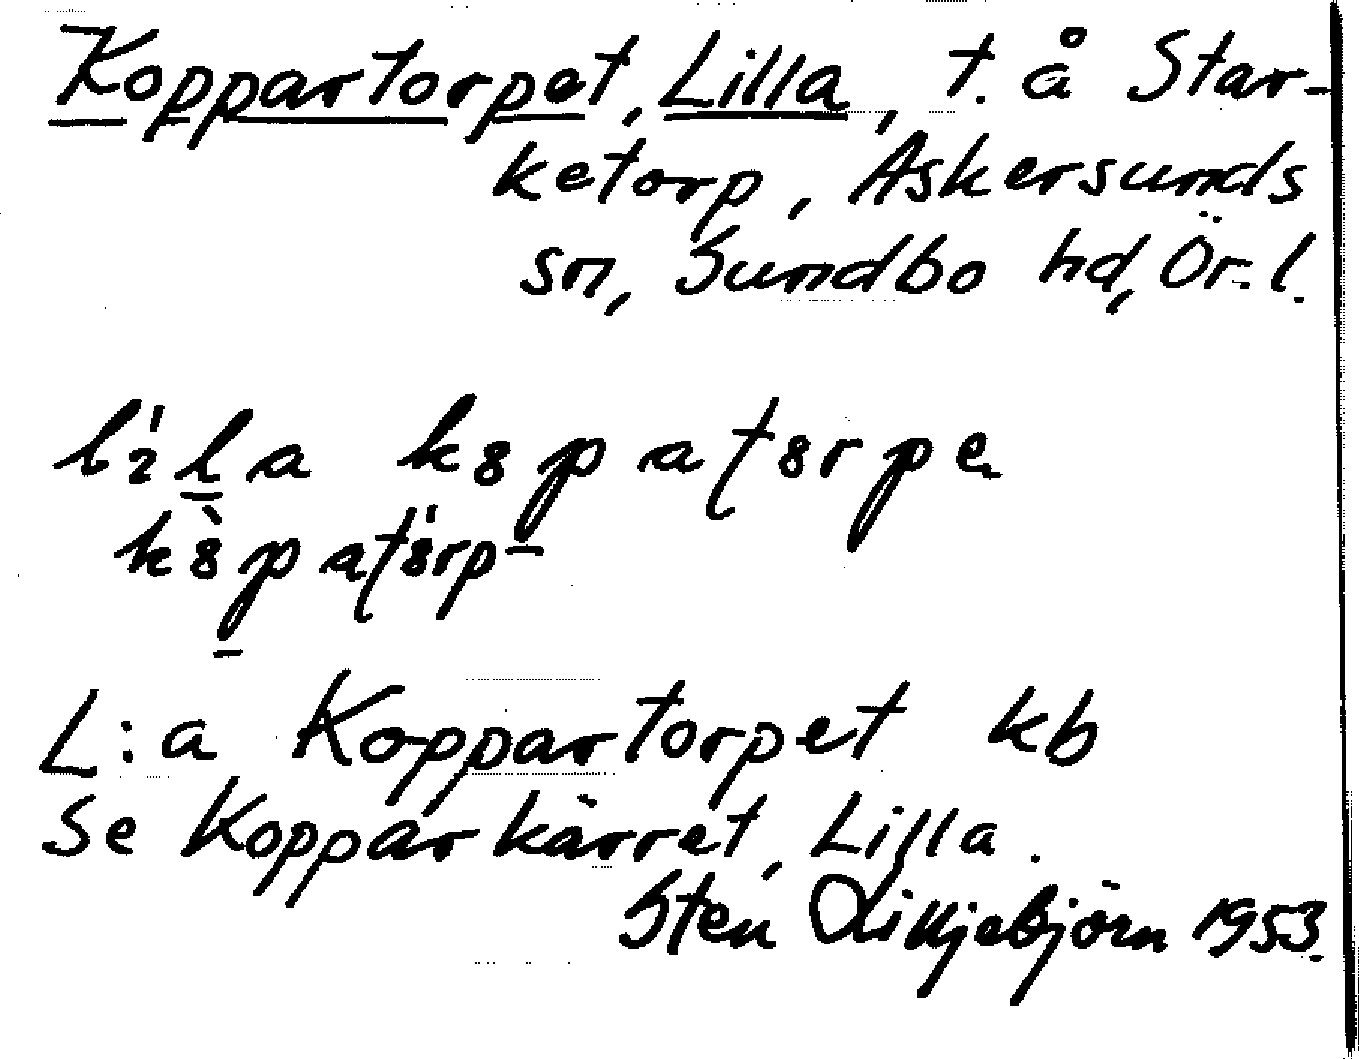 Koppartorpet, Lilla, t. å Star-
ketorp, Askersunds
sn, Sundbo hd, Ör. l.
L:a Koppartorpet kb
Se Kopparkärret, Lilla.
Sten Lilljebjörn 1953.